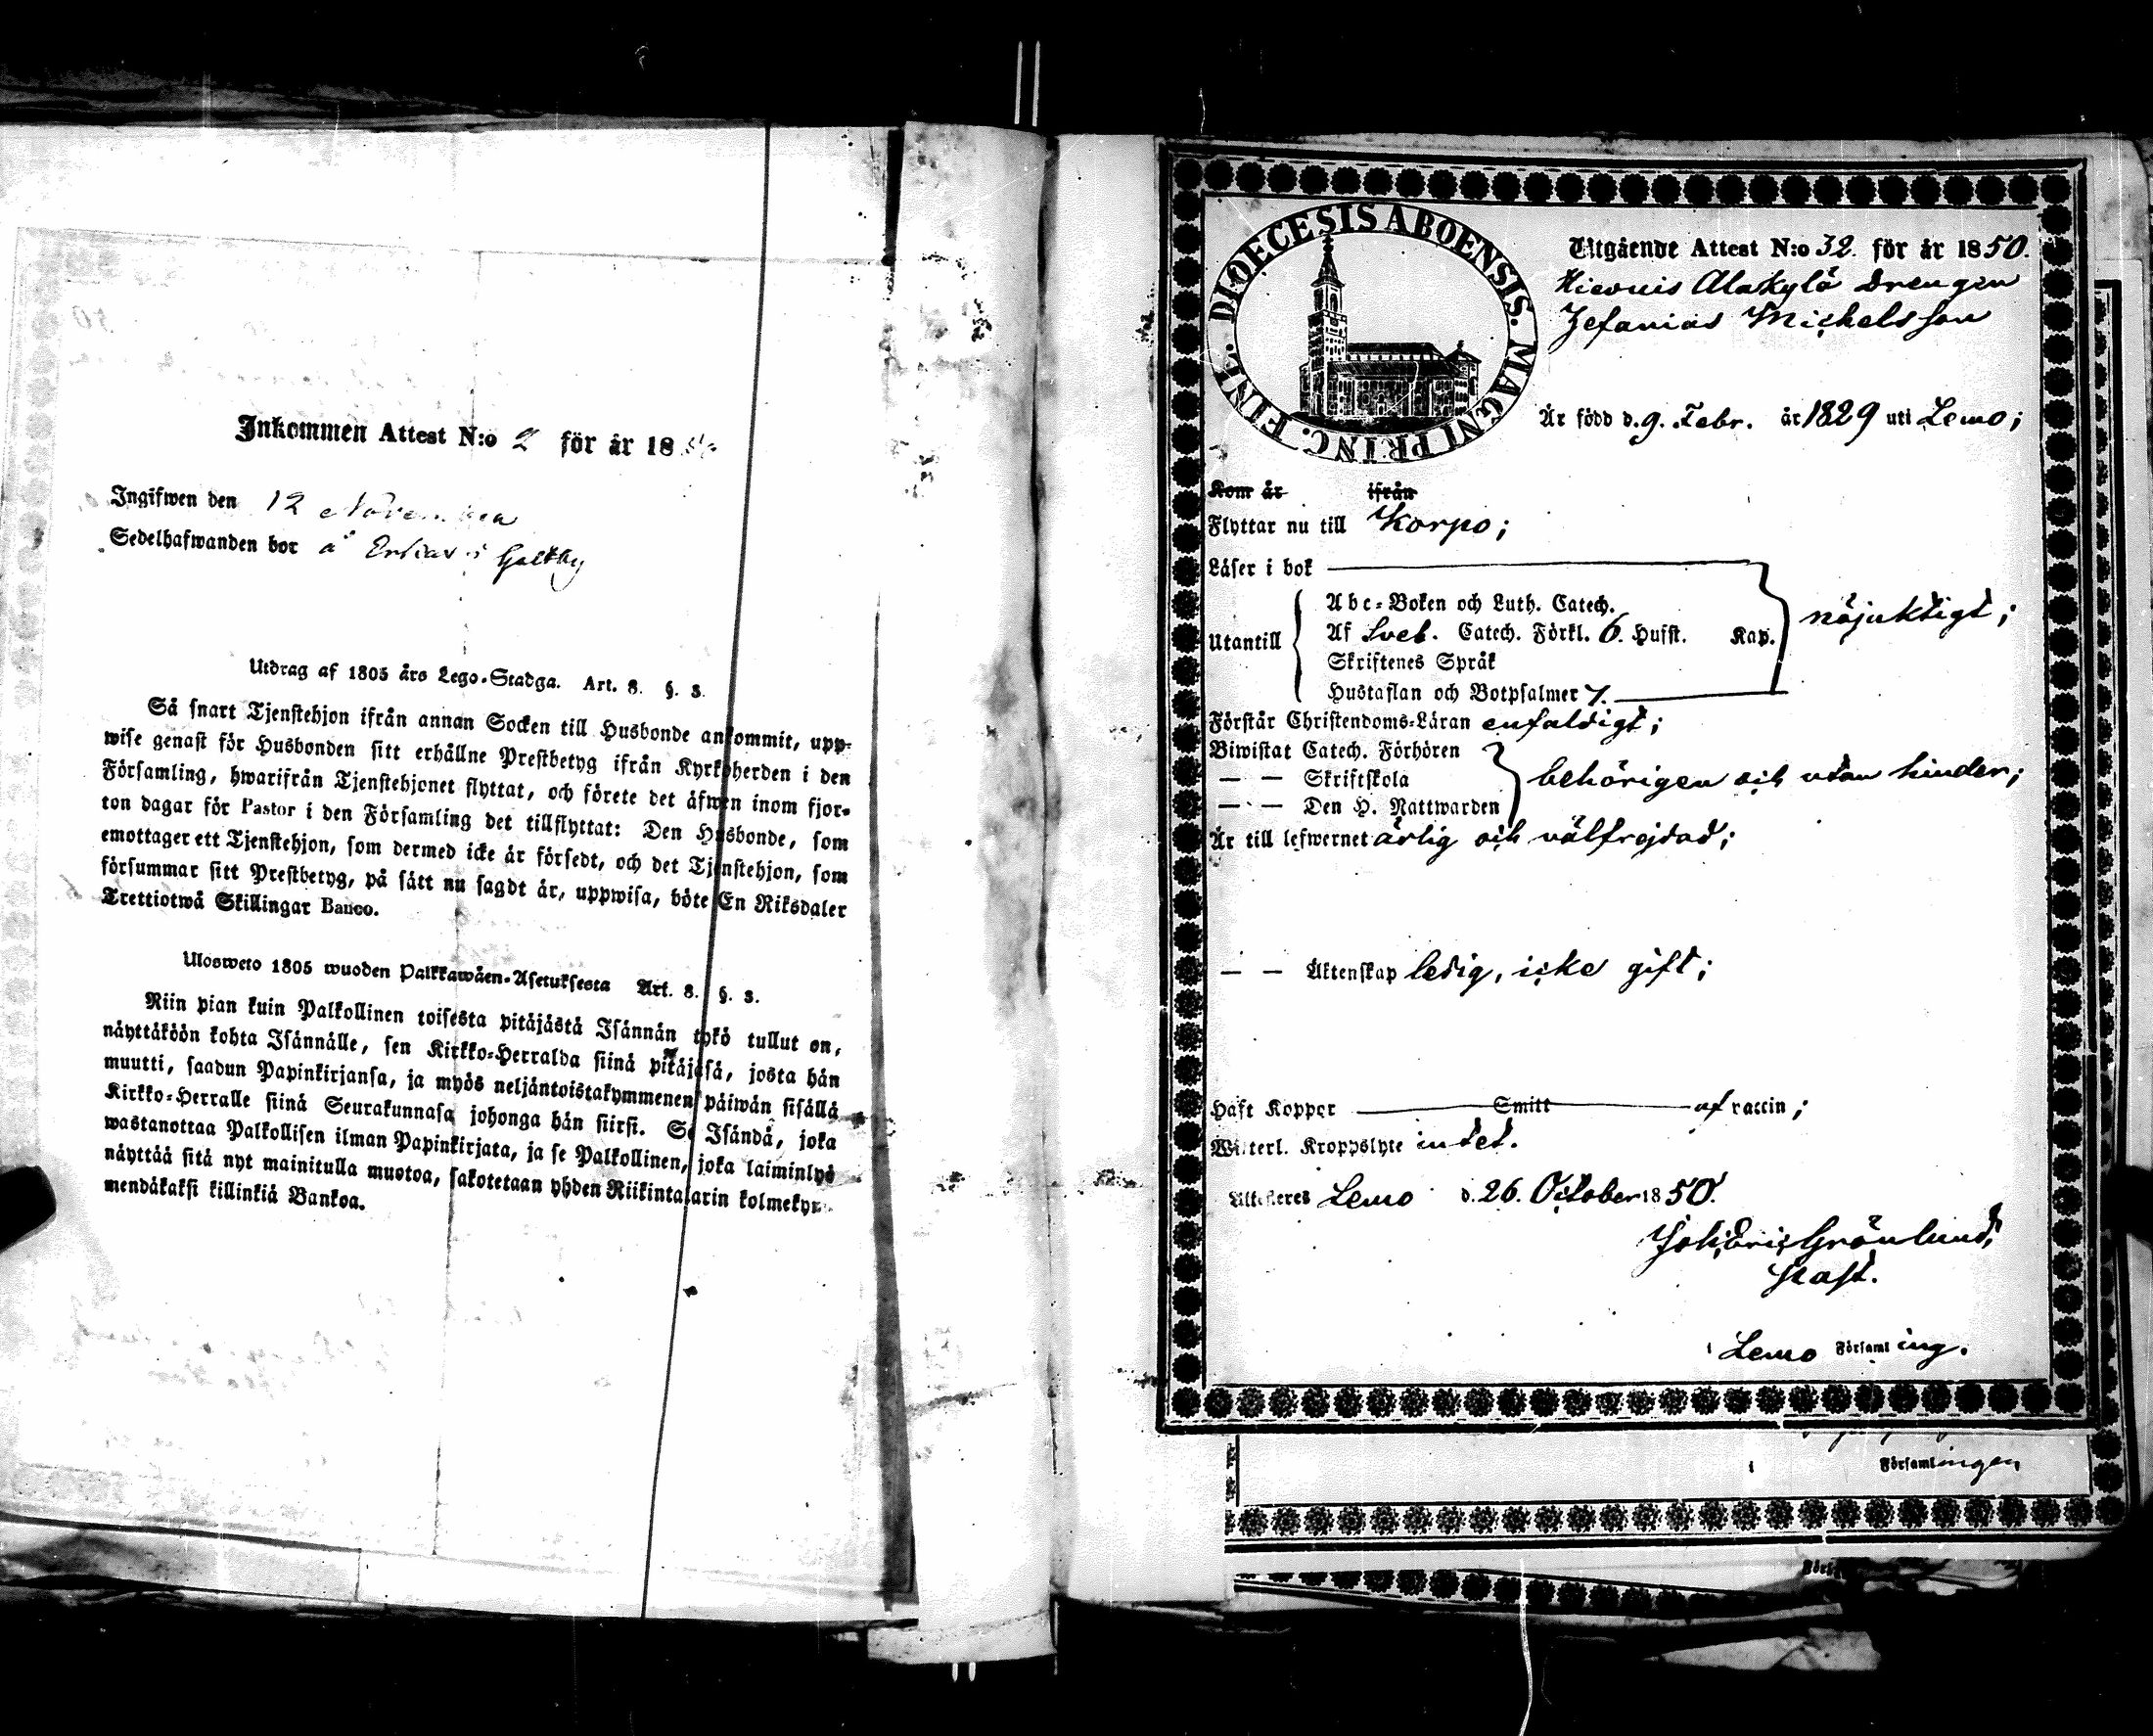 Inkommen Attest N:o 2 för år 18
Ingifwen den 12 November
Sedelhafwanden bor å i Galtby
Utdrag af 1805 års Lego-Stadga. Art. 8. §. 3.
Så snart Tjenstehjon ifrån annan Socken till Husbonde ankommit, upp-
wise genast för Husbonden sitt erhållne Prestbetyg ifrån Kyrkoherden i den
Församling, hwarifrån Tjenstehjonet flyttat, och förete det äfwen inom fjor-
ton dagar för Pastor i den Församling det tillflyttat: Den Husbonde, som
emottager ett Tjenstehjon, som dermed icke är försedt, och det Tjenstehjon, som
försummar sitt Prestbetyg, på sätt nu sagdt är, uppwisa, böte En Riksdaler
Trettiotwå Skillingar Banco.
Ulosweto 1805 wuoden Palkkawäen-Asetuksesta Art. 8. §. 3.
Niin pian kuin Palkollinen toisesta pitäjästä Isännän tykö tullut on,
näyttäköön kohta Isännälle, sen Kirkko-Herralda siinä pitäjäsä, josta hän
muutti, saadun Papinkirjansa, ja myös neljäntoistakymmenen päiwän sisällä
Kirkko-Herralle siinä Seurakunnasa johonga hän siirsi. Se Isändä, joka
wastanottaa Palkollisen ilman Papinkirjata, ja se Palkollinen, joka laiminlyö
näyttää sitä nyt mainitulla muotoa, sakotetaan yhden Riikintalarin kolmekym-
mendäkaksi killinkiä Bankoa.
DIOECESIS ABOENSIS. MAGNI PRINC. FINL.
Utgående Attest N:o 32. för år 1850.
Hiervuis Alakylä Drengen
Zefanias Michelsson
Är född d. 9. Febr. år 1829 uti Lemo;
Kom år ifrån
Flyttar nu till Korpo;
Läser i bok
Utantill
Abc-Boken och Luth. Catech.
Af Sveb. Catech. Förkl. 6. Hufst. Kap.
Skriftenes Språk
Hustaflan och Botpsalmer 7.
nöjaktigt;
Förstår Christendoms-Läran enfaldigt;
Biwistat Catech. Förhören
— — Skriftskola
— — Den H. Nattwarden
behörigen och utan hinder;
Är till lefwernet ärlig och välfrejdad;
— — Äktenskap ledig, icke gift;
Haft Koppor Smitt af vaccin;
Witterl. Kroppslyte intet.
Attesteres Lemo d. 26. October 1850.
Joh: Eric Grönlund,
Past.
i Lemo Församling.
i Församlingen